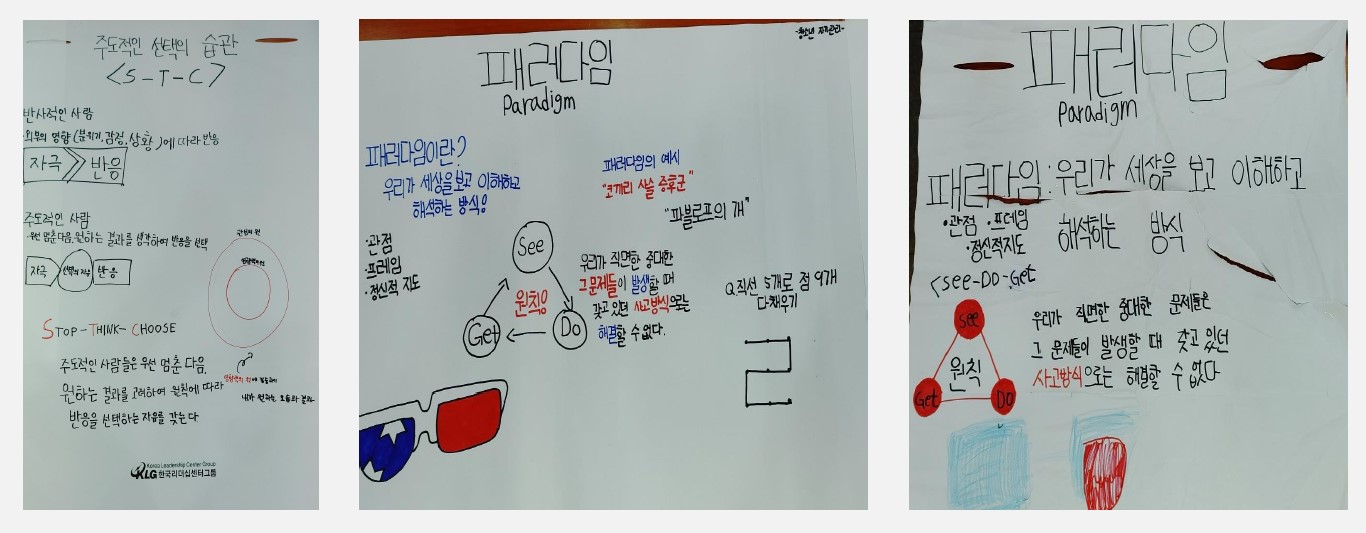 주도적인 선택의 습관
<S-T-C>
반사적인 사람
·외부의 영향(분위기, 감정, 상황)에 따라 반응
자극
반응
주도적인 사람
·우선 멈춘 다음, 원하는 결과를 생각하여 반응을 선택
자극
선택의 자유
반응
관심의 원
영향력의 원
STOP-THINK-CHOOSE
주도적인 사람들은 우선 멈춘 다음,
원하는 결과를 고려하여 원칙에 따라
반응을 선택하는 자유를 갖는다.
영향력의 원에
내가 원하는
Korea Leadership Center Group
KLG 한국리더십센터그룹
-청소년 자기관리-
패러다임
Paradigm
패러다임이란?
우리가 세상을 보고 이해하고
해석하는 방식!
·관점
·프레임
·정신적 지도
See
Get
Do
원칙!
패러다임의 예시
"코끼리 사슬 증후군"
"파블로프의 개"
우리가 직면한 중대한
그 문제들이 발생할 때
갖고 있던 사고방식으로는
해결할 수 없다.
Q. 직선 5개로 점 9개
다 채우기
패러다임
Paradigm
패러다임: 우리가 세상을 보고 이해하고
해석하는 방식
·관점 ·프레임
·정신적지도
<see-DO-Get
See
Get
DO
원칙
우리가 직면한 중대한 문제들은
그 문제들이 발생할 때 갖고 있던
사고방식으로는 해결할 수 없다